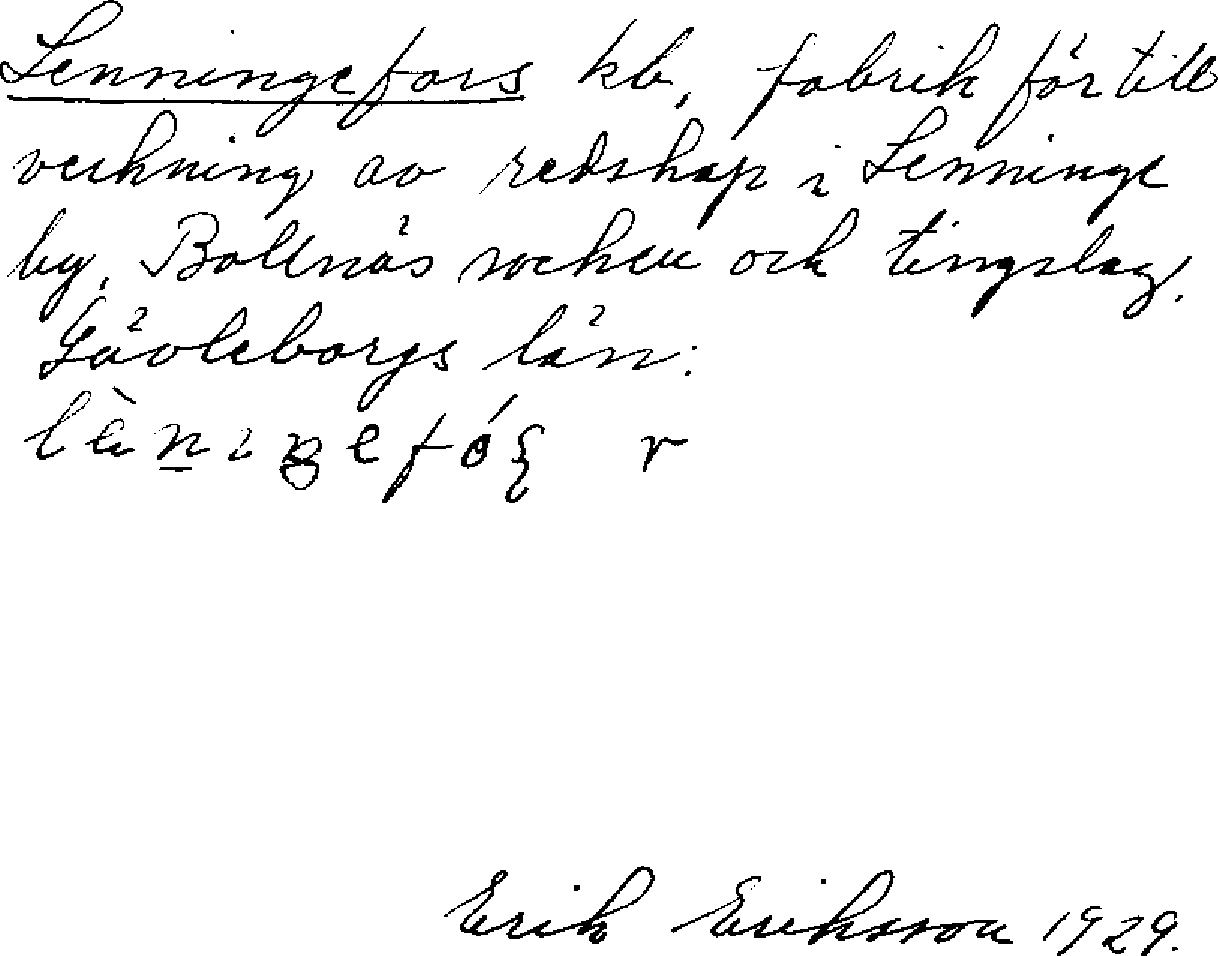 Lenningefors kb, fabrik för till
verkning av redskap i Lenninge
by, Bollnäs socken och tingslag,
Gävleborgs län:
r
Erik Eriksson 1929.